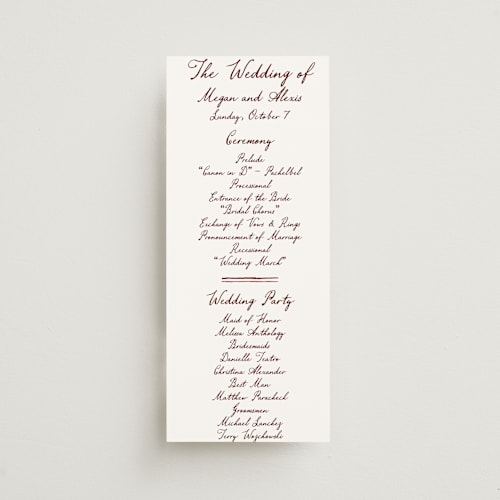 The Wedding of
Megan and Alexis
Sunday, October 7
Ceremony
Prelude
"Canon in D" - Pachelbel
Processional
Entrance of the Bride
"Bridal Chorus"
Exchange of Vows & Rings
Pronouncement of Marriage
Recessional
"Wedding March"
Wedding Party
Maid of Honor
Melissa Anthology
Bridesmaids
Danielle Teatro
Christina Alexander
Best Man
Matthew Paracheck
Groomsmen
Michael Sanchez
Terry Wozchowski